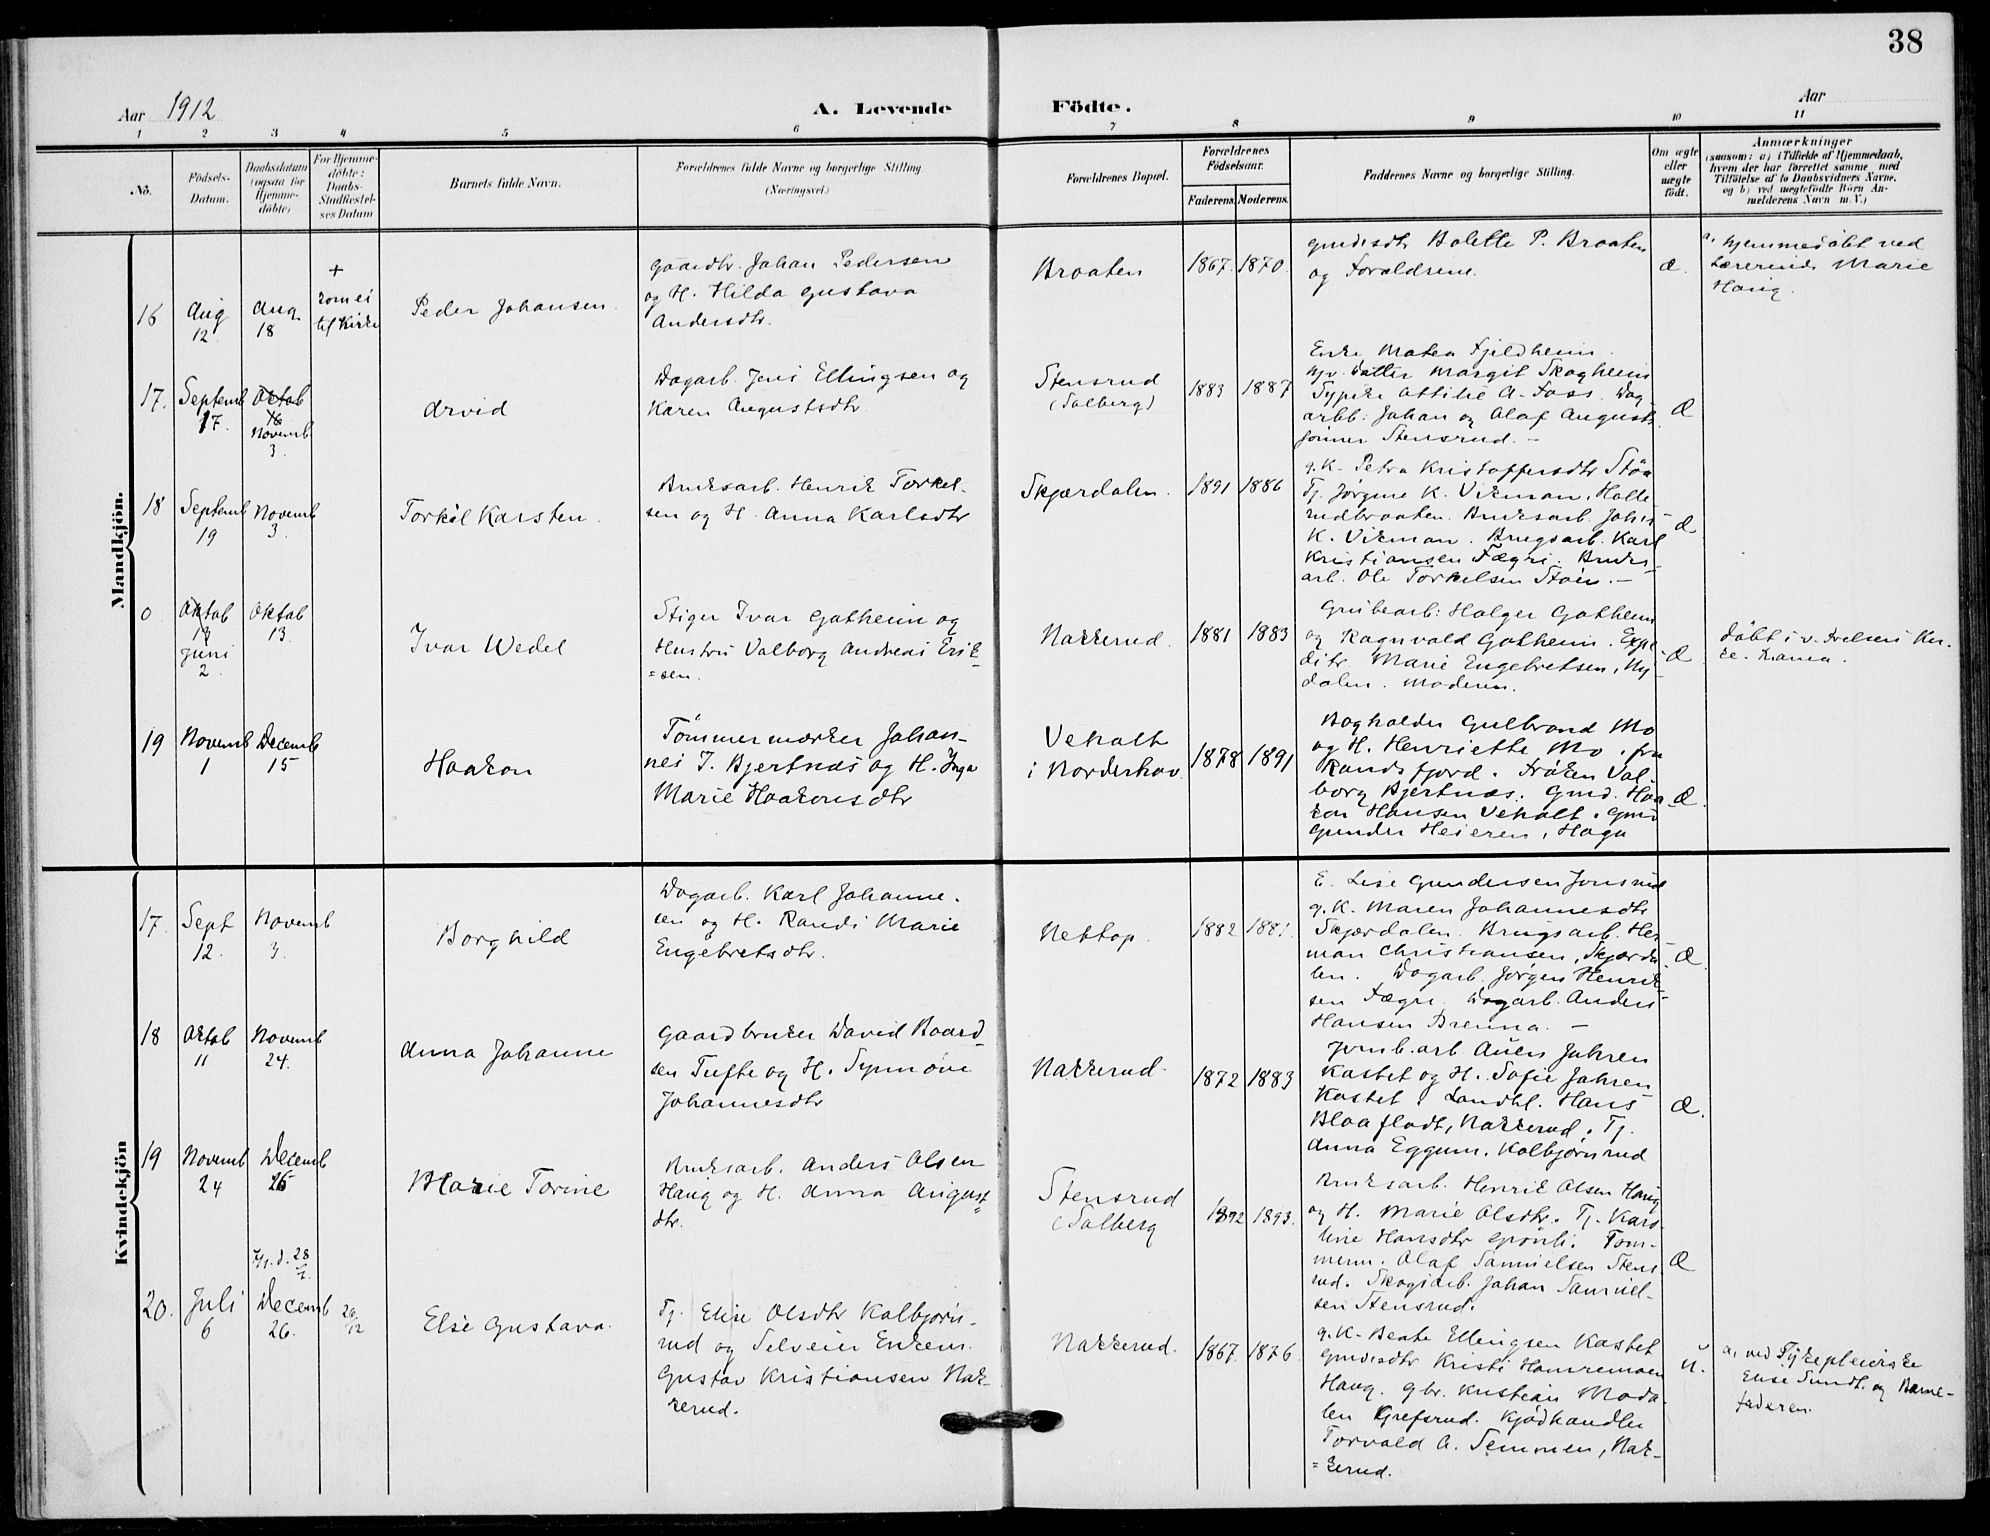 38
Aar 1912
A. Levende Födte.
Aar
1 2 3 4 5 6 7 8 9 10 11
No.
Födsels-
Datum.
Daabsdatum
(ogsaa for
Hjemme-
döbte)
For Hjemme-
döbte:
Daabs-
Stadfæstel-
ses Datum
Barnets fulde Navn.
Forældrenes fulde Navne og borgerlige Stilling.
(Næringsvei.)
Forældrenes Bopæl.
Forældrenes
Födselsaar.
Faderens. Moderens.
Faddernes Navne og borgerlige Stilling.
Om ægte
eller
uægte
födt.
Anmærkninger
(saasom: a) i Tilfælde af Hjemmedaab,
hvem der har forrettet samme, med
Tilföielse af to Daabsvidners Navne,
og b) ved uegtefödte Börn An-
melderens Navn m. V.)
Mandkjön.
16
Aug
12
Aug.
18
+
kom ei
til Kirke
Peder Johansen.
Gaardbr. Johan Pedersen
og H. Hilda Gustava
Andersdtr.
Braaten
1867. 1870.
Gmdsdtr Bolette P. Braaten
og Forældrene.
Æ.
a, hjemmedöbt ved
Lærerinde Marie
Haug.
17.
Septemb
17.
Oktob
Novemb
3
Arvid
Dagarb. Jens Ellingsen og
Karen Augustsdtr.
Stensrud
(Solberg)
1883 1887
Enke Matea Fjeldheim.
Datter Margit Skogheim
Ottilie A. Foss. Dag-
arbb: Johan og Olaf August-
sönner Stensrud. –
Æ
18
Septemb
19
Novemb
3.
Torkel Karsten.
Bruksarb. Henrik Torkel-
sen og H. Anna Karlsdtr
Skjærdalen.
1891 1886
g.K. Petra Kristoffersdtr Stöa
Tj. Jörgine K. Vikman, Holle-
rudbraaten. Bruksarb. Johs
K. Vikman. Brugsarb. Karl
Kristiansen Fægri. Bruks-
arb. Ole Torkelsen Stöen. –
Æ
0
Oktob
13
Juni
2
Oktob
13.
Ivar Wedel
Stiger Ivar Gotheim og
Hustru Valborg Andrea Erik-
=sen.
Nakkerud.
1881 1883
Grubearb: Holger Gotheim
og Ragnvald Gotheim. Expe-
ditr. Marie Engebretsen, Ny-
dalen. Moderen.
Æ
döbt i v. Frelsers Kir-
ke. Krania.
19
Novemb
1
Decemb
15
Haakon
Tömmermærker Johan-
nes J. Bjertnæs og H. Inga
Marie Haakonsdtr
Veholt
i Norderhov.
1878 1891
Bogholder Gulbrand Mo
og H. Henriette Mo. fra
Randsfjord. Fröken Val-
borg Bjertnæs. Gmd. Haa-
kon Hansen Veholt. Gmd
Gunder Heieren, Haga
Æ.
Kvindekjön
17.
Sept
12.
Novemb
3.
Borghild
Dagarb. Karl Johanne-
sen og H. Randi Marie
Engebretsdtr.
Nettop.
1882 1881.
E. Lise Gundersen Jonsrud
g.K. Maren Johannesdtr
Skjærdalen. Brugsarb. Her-
man Christiansen, Skjærda-
len. Dagarb. Jörgen Henrik-
sen Fægri. Dagarb. Anders
Hansen Brenna. –
Æ.
18
Oktob
11
Novemb
24.
Anna Johanne
Gaardbruker David Baard-
sen Tufte og H. Synnöve
Johannesdtr
Nakkerud.
1872 1883
Jernb.arb. Auen Jahren
Kastet og H. Sofie Jahren
Kastet. Landhl. Hans
Blaafladt, Nakkerud. Tj.
Anna Eggum, Kolbjörnsrud
Æ.
19
Novemb
24
Decemb
26
Marie Torine
Bruksarb. Anders Olsen
Haug og H. Anna August-
dtr.
Stensrud
(Solberg
1892 1893.
Bruksarb. Henrik Olsen Haug
og H. Marie Olsdtr. Tj. Karo-
line Hansdtr Grönli. Töm-
merm. Olaf Samuelsen Stens-
rud. Skogsarb. Johan Samuel-
sen Stensrud.
Æ
20.
Juli
6
Decemb
26.
26/12
Else Gustava.
Tj. Elise Olsdtr Kolbjörns-
rud og Selveier Enkem.
Gustav Kristiansen Nak-
kerud.
Nakkerud.
1867. 1876.
g.K. Beate Ellingsen Kastet
Gmdsdtr Kristi Hamremoen
Haug. Gbr. Kristian Moda-
len Grefsrud. Kjödhandler
Torvald A. Semmen, Nak-
=kerud.
U.
a, ved Sykepleierske
Elise Sundt, og Barne-
faderen.